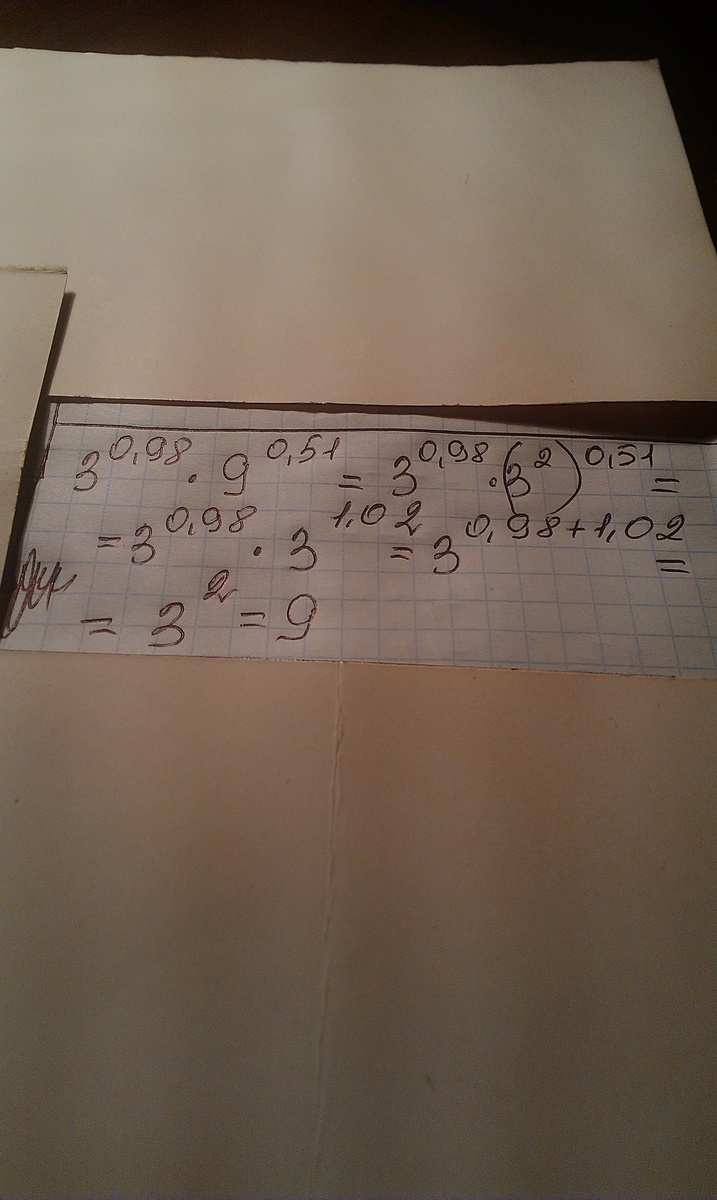 3^0,98 · 9^0,51 = 3^0,98 · (3^2)^0,51 =
= 3^0,98 · 3^1,02 = 3^0,98+1,02 =
= 3^2 = 9